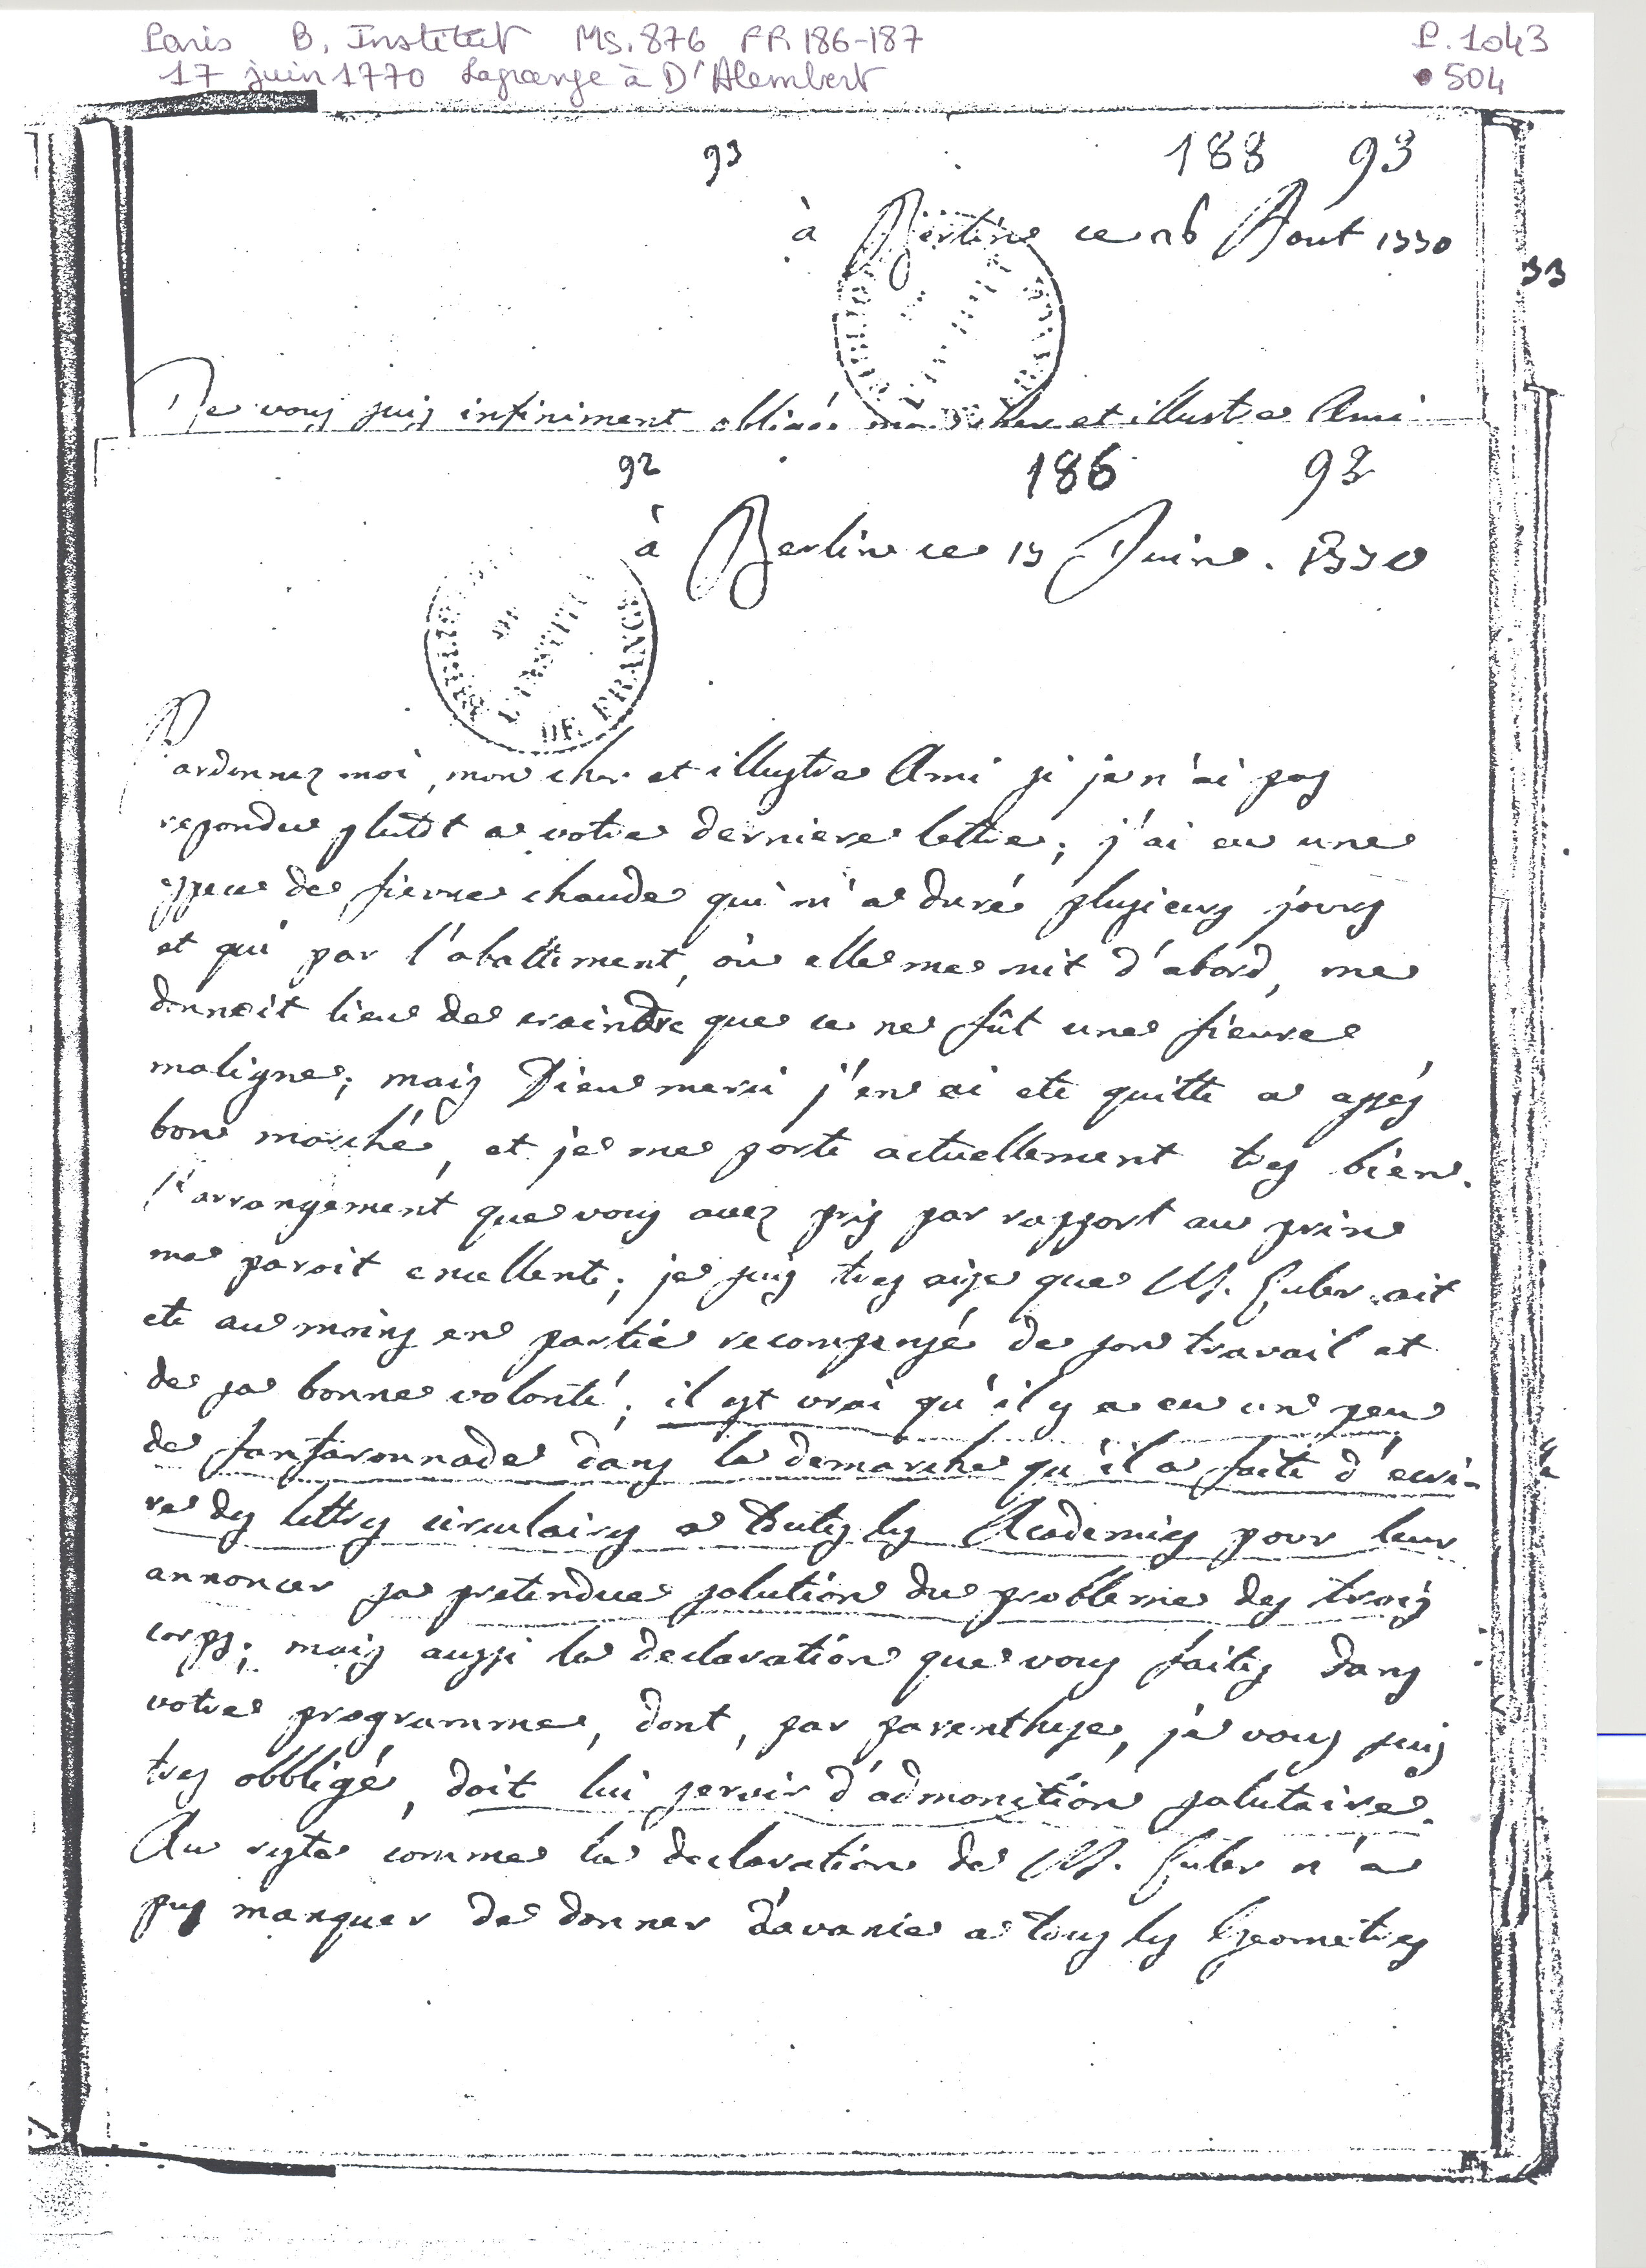 Paris B. Institut MS. 876 FR 186-187 P. 1043
17 juin 1770 Lagrange à D'Alembert 504
93 188 93
à Berlin ce 26 Aout 1770
33
Je vous suis infiniment obligé mon cher et illustre Ami
92 186 93
à Berlin ce 17 Juin. 1770
DE L'INSTITUT DE FRANCE
Pardonnez moi, mon cher et illustre Ami si je n'ai pas
repondu plutôt a votre derniere lettre; j'ai eu une
espece de fievre chaude qui m'a duré plusieurs jours
et qui par l'abattement, où elle me mit d'abord, me
donnoit lieu de craindre que ce ne fût une fievre
maligne; mais Dieu merci j'en ai eté quitte a assés
bon marché, et je me porte actuellement tres bien.
l'arrangement que vous avez pris par rapport au prix
me paroit excellent; je suis tres aise que M. Euler ait
eté au moins en partie recompensé de son travail et
de sa bonne volonté; il est vrai qu'il y a eu un peu
de fanfaronnade dans la demarche qu'il a faite d'ecri-
re des lettres circulaires a toutes les Academies pour leur
annoncer sa pretendue solution du probleme des trois
corps; mais aussi la declaration que vous faites dans
votre programme, dont, par parenthese, je vous suis
tres obbligé, doit lui servir d'admonition salutaire.
Au reste comme la declaration de M. Euler n'a
pas manquer de donner d'avanie a tous les Geometres